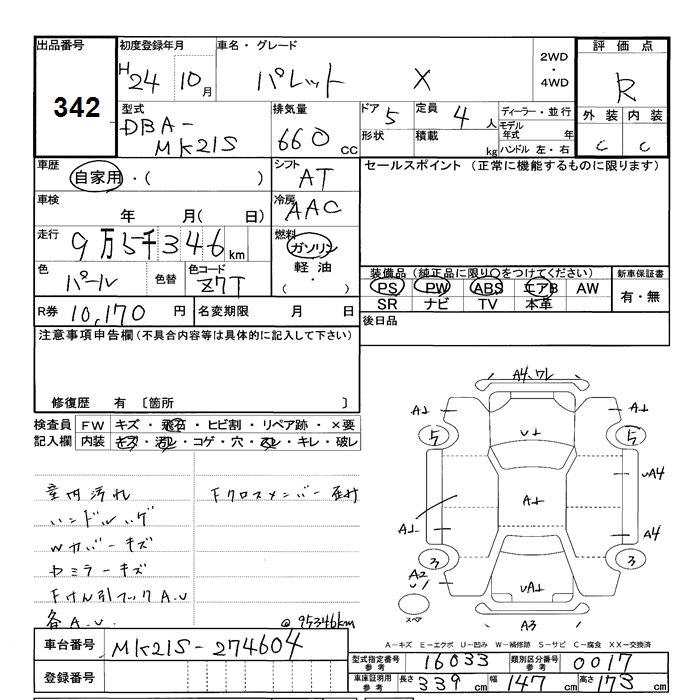 出品番号 初度登録年月 車名・グレード 2WD ・ 4WD 評価点
342 H24 10月 パレット X R
型式 DBA-MK21S 排気量 660 CC ドア 5 定員 4 人 ディーラー・並行 外装 内装
形状 積載 kg モデル年式 年 ハンドル 左・右 C C
車歴 自家用・( ) シフト AT セールスポイント (正常に機能するものに限ります)
車検 年 月( 日) 冷房 AAC
走行 9万5千346km 燃料 ガソリン
軽油
・
( )
色 パール 色替 色コード Z7T
装備品 (純正品に限り○をつけてください) 新車保証書
PS PW ABS エアB AW 有・無
SR ナビ TV 本革
R券 10,170 円 名変期限 月 日 後日品
注意事項申告欄(不具合内容等は具体的に記入して下さい)
修復歴 有 〔箇所 〕
検査員 FW キズ・飛石・ヒビ割・リペア跡・×要
記入欄 内装 キズ・汚レ・コゲ・穴・スレ・キレ・破レ
室内汚れ Fクロスメンバー
ハンドルハゲ
Wカバーキズ
ドミラーキズ
Fけん引フックA.U
各A.U. @95346km
A4、ワレ
A1 A1
5 U1 5
UA4
A1 A1
A4
3 3
A2
U1 UA1
スペア A3
A-キズ E-エクボ U-凹み W-補修跡 S-サビ C-腐食 XX-交換済
車台番号 MK21S-274604
登録番号
型式指定番号 参考 16033 類別区分番号 参考 0017
車庫証明用 参考 長さ 339 cm 幅 147 cm 高さ 173 cm